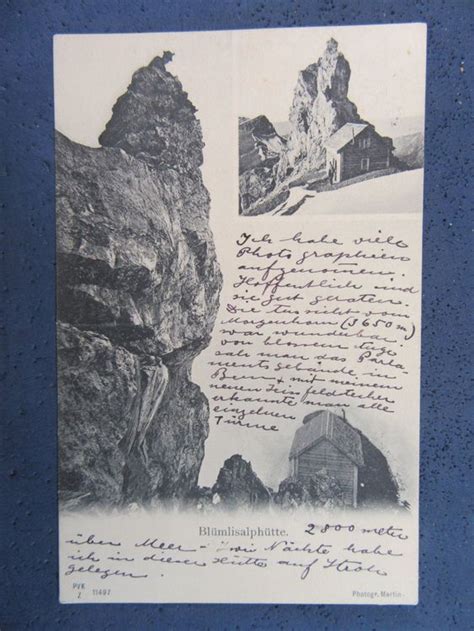 Ich habe viele
Photographien
aufgenommen.
Hoffentlich sind
sie gut geraten.
Die Aussicht vom
Morgenhorn (3650 m)
war wunderbar.
von blossem Auge
sah man das Parla
ments gebäude in
B. + mit meinem
neuen Feldstecher
erkannte man alle
einzelnen
Türme
Blümlisalphütte.
2800 meter
über Meer - Zwei Nächte habe
ich in dieser Hütte auf Stroh
gelegen.
PVK
Z 11497
Photogr. Martin